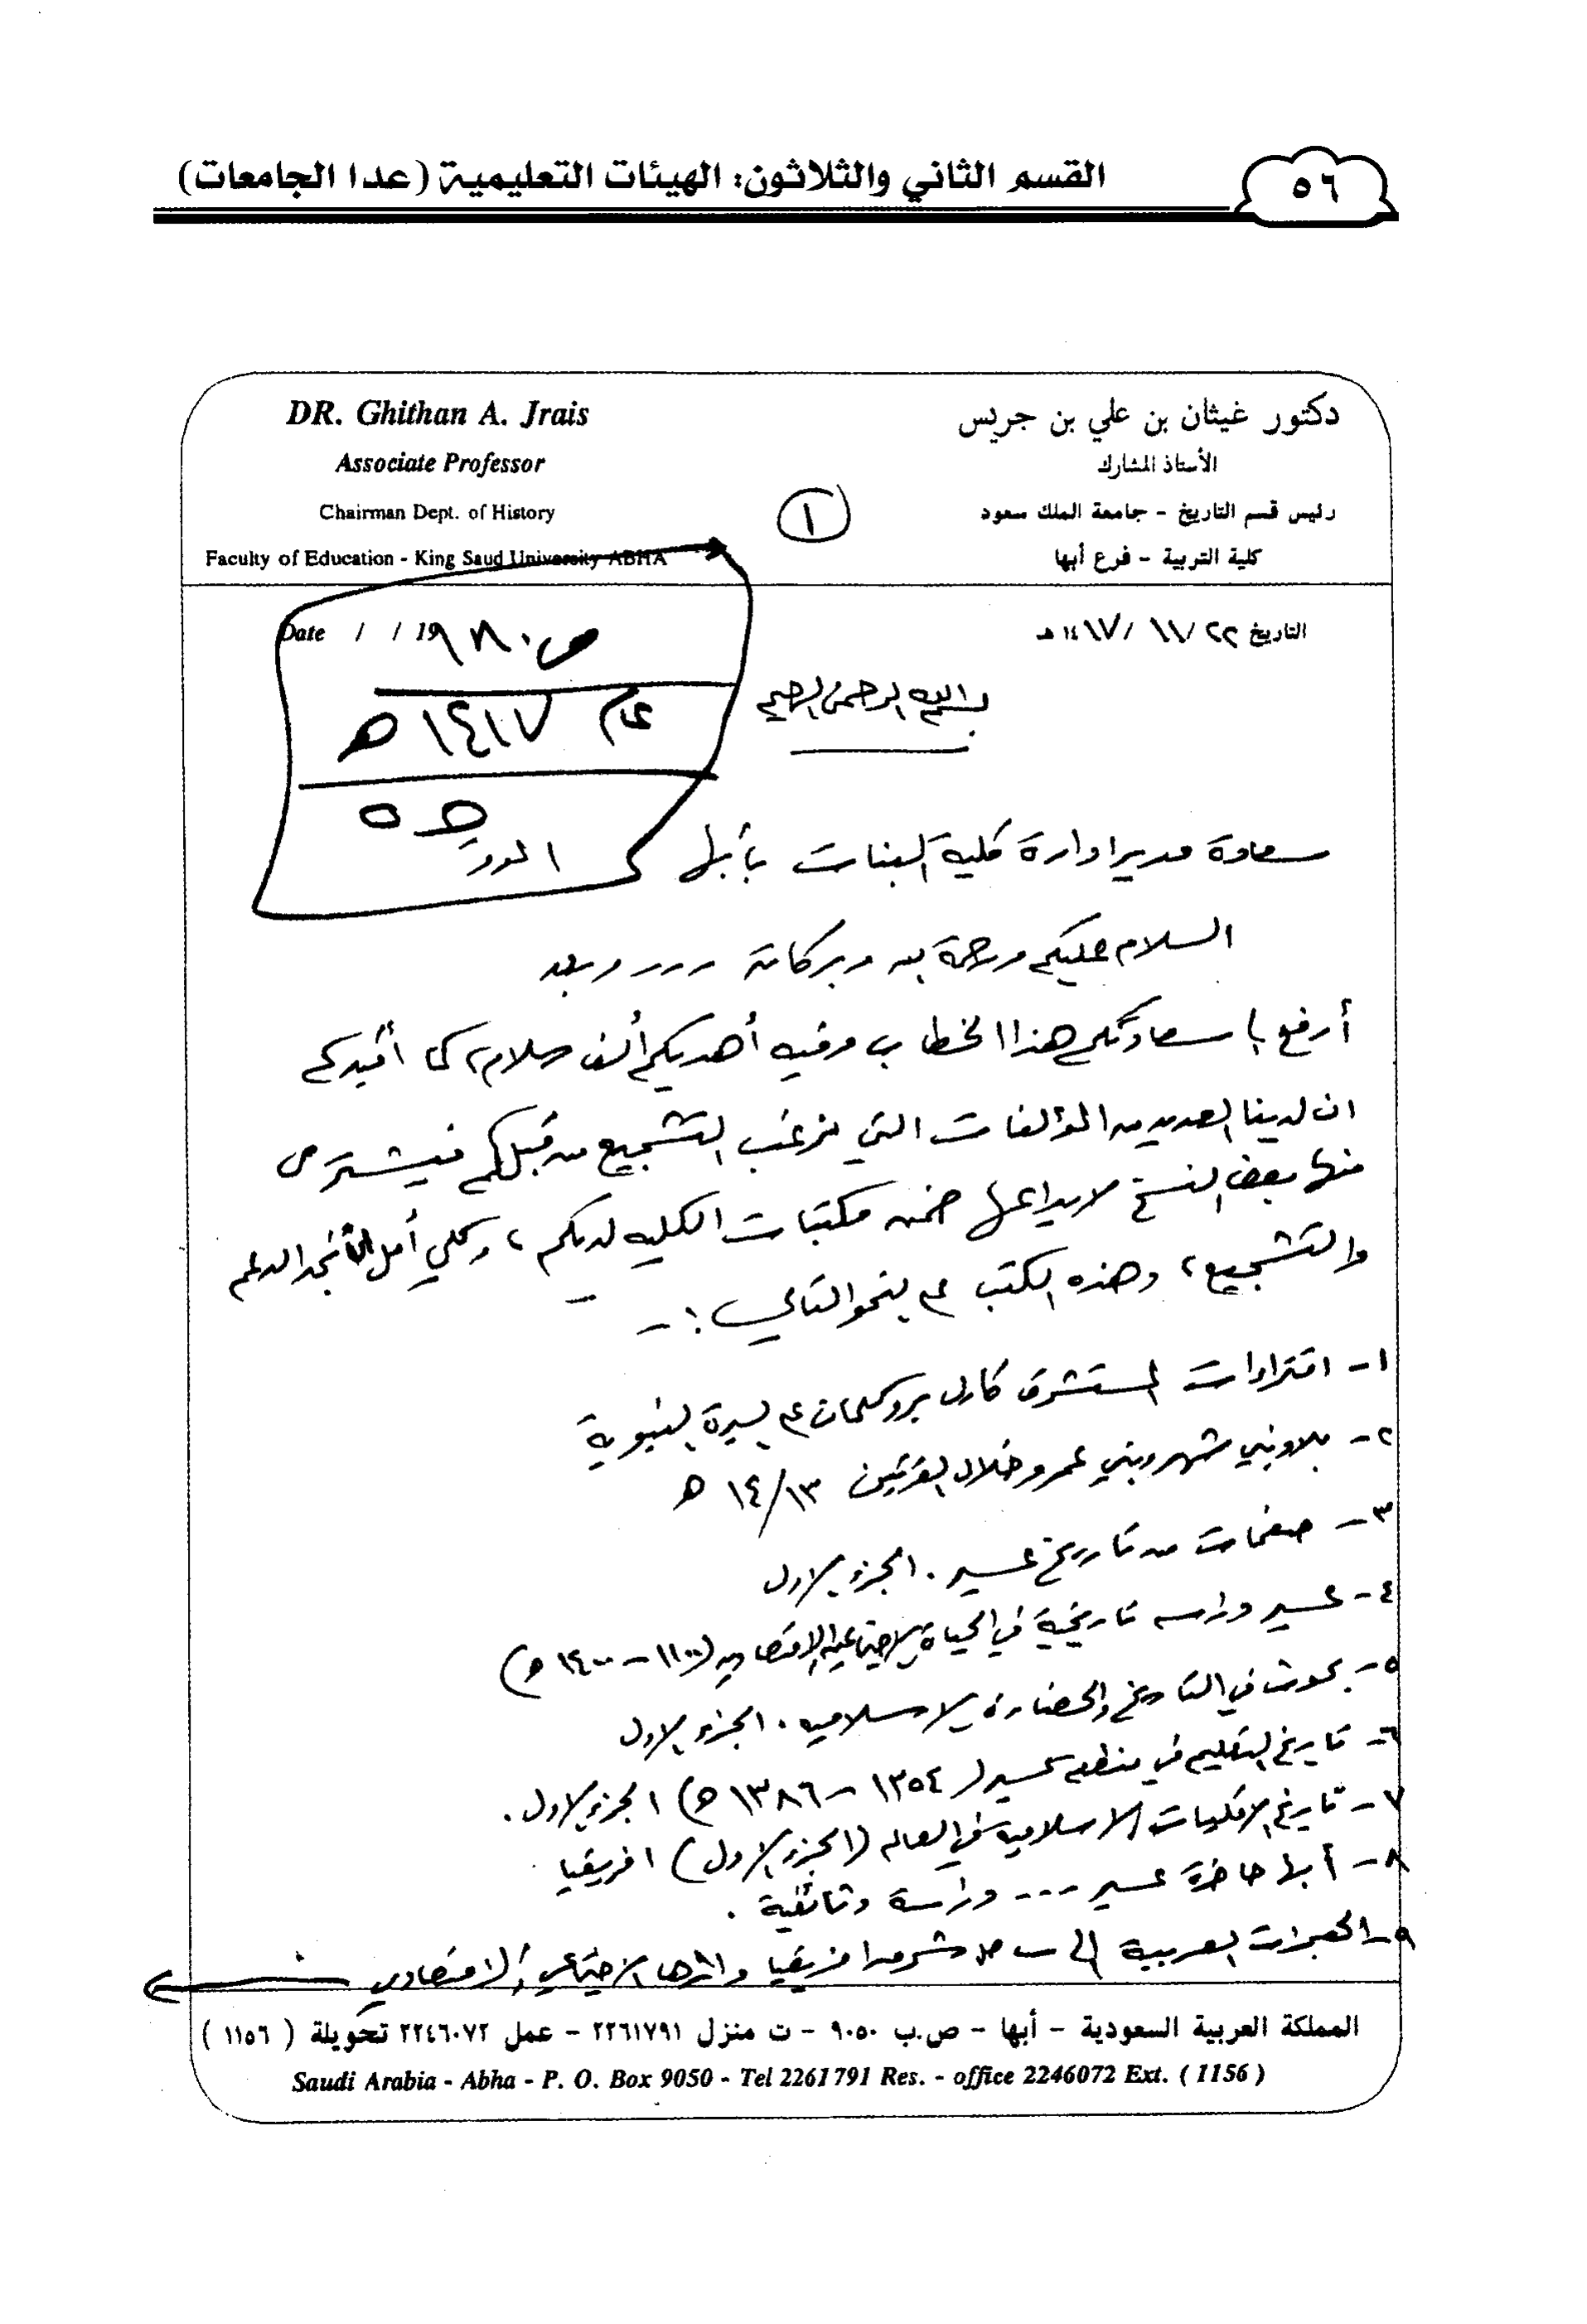 القسم الثاني والثلاثون: الهيئات التعليمية (عدا الجامعات)
٥٦
DR. Ghithan A. Jrais
Associate Professor
Chairman Dept. of History
Faculty of Education - King Saud University ABHA
دكتور غيثان بن علي بن جريس
الأستاذ المشارك
رئيس قسم التاريخ - جامعة الملك سعود
كلية التربية - فرع أبها
١
التاريخ ٢٢/ ١١/ ١٤١٧ هـ
Date / / 19
عام ١٤١٧ هـ
بسم الله الرحمن الرحيم
سعادة مدير ادارة كلية البنات بأبها
السلام عليكم ورحمة الله وبركاته --- وبعد
أرفع إلى سعادتكم هذا الخطاب وفيه أهديكم ألف سلام، كما أفيدكم
ان لدينا العديد من المؤلفات التي نرغب التشجيع من قبلكم فيشترى
منها بعض النسخ لايداعها ضمن مكتبات الكليه لديكم، وكلي أمل أن نجد الدعم
والتشجيع، وهذه الكتب على النحو التالي :-
١- افتراءات المستشرق كارل بروكلمان على السيرة النبوية
٢- بلاد بني شهر وبني عمرو خلال القرنين ١٣/ ١٤ هـ
٣- صفحات من تاريخ عسير . الجزء الاول
٤- عسير دراسه تاريخية في الحياة الاجتماعيه والاقتصاديه (١١٠٠ - ١٤٠٠ هـ)
٥- بحوث في التاريخ والحضارة الاسلاميه . الجزء الاول
٦- تاريخ التعليم في منطقه عسير (١٣٥٤ - ١٣٨٦ هـ) الجزء الاول .
٧- تاريخ الاقليات الاسلاميه في العالم (الجزء الاول) افريقيا .
٨- أبها حاضرة عسير --- دراسة وثائقية .
٩- الهجرات العربية إلى ساحل شرق افريقيا واثرها الاجتماعي والاقتصادي
المملكة العربية السعودية - أبها - ص.ب ٩٠٥٠ - ت منزل ٢٢٦١٧٩١ - عمل ٢٢٤٦٠٧٢ تحويلة ( ١١٥٦ )
Saudi Arabia - Abha - P. O. Box 9050 - Tel 2261791 Res. - office 2246072 Ext. ( 1156 )